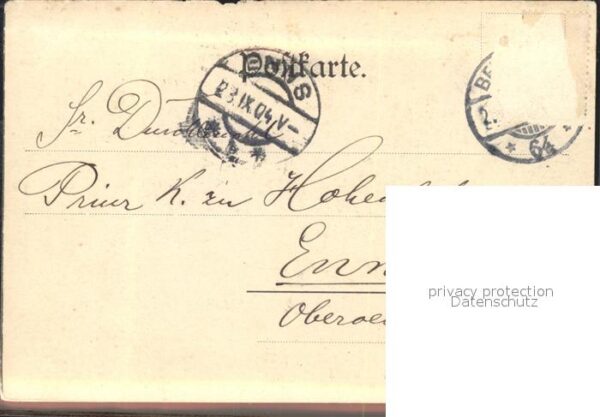 Postkarte.
ENNS
23.IX.04.V-
BE
2.
64
Sr. Durchlaucht
Prinz K. zu Hohen
Enn
Oberoe
privacy protection
Datenschutz